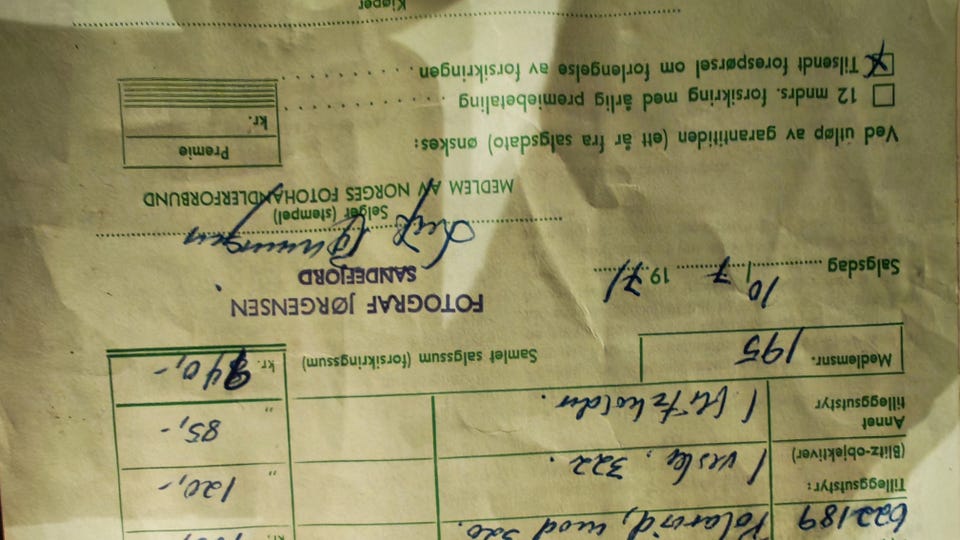 622189 Polaroid, mod 320.
Tilleggsutstyr:
(Blitz-objektiver) 1 veske, 322. " 120,-
Annet
tilleggsutstyr 1 blitzholder. " 85,-
Medlemsnr. 195 Samlet salgssum (forsikringssum) kr. 940,-
FOTOGRAF JØRGENSEN
SANDEFJORD
Salgsdag 10/7 1971
Selger (stempel)
MEDLEM AV NORGES FOTOHANDLERFORBUND
Ved utløp av garantitiden (ett år fra salgsdato) ønskes:
Premie
12 mndrs. forsikring med årlig premiebetaling
kr.
x Tilsendt forespørsel om forlengelse av forsikringen
Kjøper